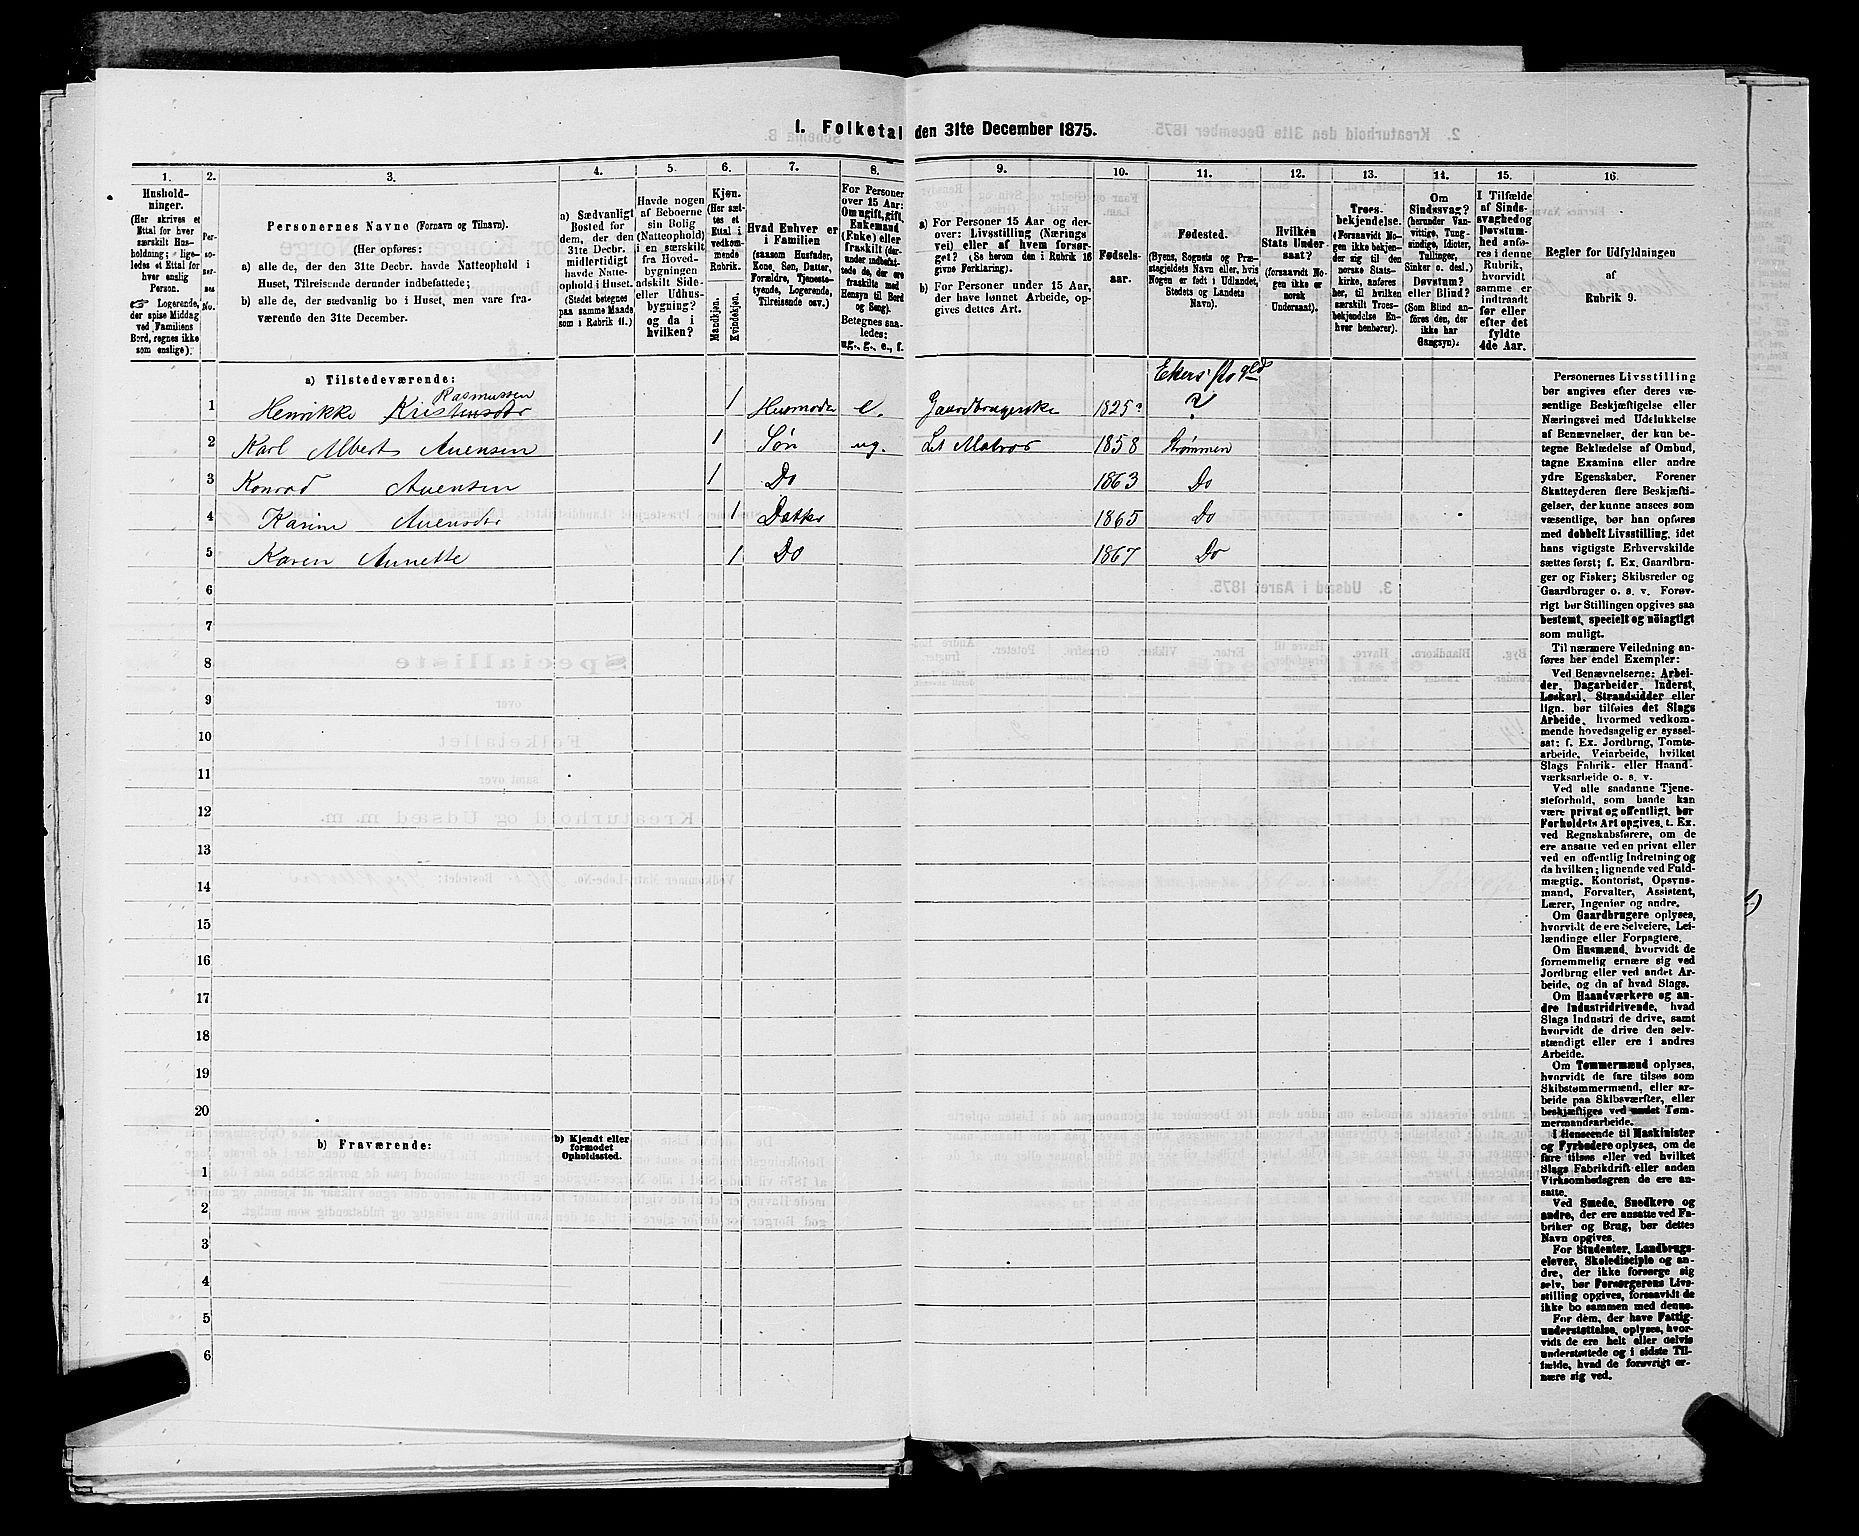 1. Folketal den 31te December 1875.
1. 2. 3. 4. 5. 6. 7. 8. 9. 10. 11. 12. 13. 14. 15. 16.
Hushold-
ninger.
(Her skrives et
Ettal for hver
særskilt Hus-
holdning; lige-
ledes et Ettal for
hver enslig
Person.
☞ Logerende,
der spise Middag
ved Familiens
Bord, regnes ikke
som enslige).
Per-
so-
ner-
nes
No.
Personernes Navne (Fornavn og Tilnavn).
(Her opføres:
a) alle de, der den 31te Decbr. havde Natteophold i
Huset, Tilreisende derunder indbefattede;
b) alle de, der sædvanlig bo i Huset, men vare fra-
værende den 31te December.
a) Sædvanligt
Bosted for
dem, der den
31te Decbr.
midlertidigt
havde Natte-
ophold i Huset.
(Stedet betegnes
paa samme Maade
som i Rubrik 11.)
Havde nogen
af Beboerne
sin Bolig
(Natteophold)
i en særskilt
fra Hoved-
bygningen
adskilt Side-
eller Udhus-
bygning?
og da i
hvilken?
Kjøn.
(Her sæt-
tes et
Ettal i
vedkom-
mende
Rubrik.
Mandkjøn.
Kvindekjøn.
Hvad Enhver er
i Familien
(saasom Husfader,
Kone, Søn, Datter,
Forældre, Tjeneste-
tyende, Logerende,
Tilreisende osv.)
For Personer
over 15 Aar:
Om ugift, gift,
Enkemand
(Enke) eller
fraskilt (der-
under indbefat-
tede de, der ere
fraskilte med
Hensyn til Bord
og Seng).
Betegnes saa-
ledes:
ug., g., e., f.
a) For Personer 15 Aar og der-
over: Livsstilling (Nærings
vei) eller af hvem forsør-
get? (Se herom den i Rubrik 16
givne Forklaring).
b) For Personer under 15 Aar,
der have lønnet Arbeide, op-
gives dettes Art.
Fødsels-
aar.
Fødested.
(Byens, Sognets og Præ-
stegjeldets Navn eller, hvis
Nogen er født i Udlandet,
Stedets og Landets
Navn).
Hvilken
Stats Under-
saat?
(forsaavidt No-
gen ikke er
norsk
Undersaat).
Troes-
bekjendelse.
(Forsaavidt No-
gen ikke bekjen-
der sig til den
norske Stats-
kirke, anføres
her, til hvilken
særskilt Troes-
bekjendelse En-
hver henhører).
Om
Sindssvag?
(herunder Van-
vittige, Tung-
sindige, Idioter,
Tullinger,
Sinker o. desl.)
Døvstum?
eller Blind?
(Som Blind an-
føres den, der
ikke har
Gangsyn).
I Tilfælde
af Sinds-
svaghed og
Døvstum-
hed anfø-
res i denne
Rubrik,
hvorvidt
samme er
indtraadt
før eller
efter det
fyldte
4de Aar.
Regler for Udfyldningen
af
Rubrik 9.
a) Tilstedeværende:
Ekers
Rasmussen
1 Henrikke Kristensdtr 1 Husmoder e. Gaardbrugerske 1825? ?
2 Karl Albert Auensen 1 Søn ug. Let Matros 1858 Strømmen
3 Konrad Auensen 1 Do 1863 Do
4 Karine Auensdtr 1 Datter 1865 Do
5 Karen Annette 1 Do 1867 Do
6
7
8
9
10
11
12
13
14
15
16
17
18
19
20
b) Fraværende:
b) Kjendt eller
formodet
Opholdssted.
1
2
3
4
5
6
Personernes Livsstilling
bør angives efter deres væ-
sentlige Beskjæftigelse eller
Næringsvei med Udelukkelse
af Benævnelser, der kun be-
tegne Beklædelse af Ombud,
tagne Examina eller andre
ydre Egenskaber. Forener
Skatteyderen flere Beskjæfti-
gelser, der kunne ansees som
væsentlige, bør han opføres
med dobbelt Livsstilling, idet
hans vigtigste Erhvervskilde
sættes først; f. Ex. Gaardbru-
ger og Fisker; Skibsreder og
Gaardbruger o. s. v. Forøv-
rigt bør Stillingen opgives saa
bestemt, specielt og nöiagtigt
som muligt.
Til nærmere Veiledning an-
føres her endel Exempler:
Ved Benævnelserne: Arbei-
der, Dagarbeider, Inderst,
Løskarl, Strandsidder eller
lign. bør tilføies det Slags
Arbeide, hvormed vedkom-
mende hovedsagelig er syssel-
sat; f. Ex. Jordbrug, Tomte-
arbeide, Veiarbeide, hvilket
Slags Fabrik- eller Haand-
værksarbeide o. s. v.
Ved alle saadanne Tjene-
steforhold, som baade kan
være privat og offentligt, bør
Forholdets Art opgives, t. Ex.
ved Regnskabsførere, om de
ere ansatte ved en privat eller
ved en offentlig Indretning og
da hvilken; lignende ved Fuld-
mægtig, Kontorist, Opsyns-
mand, Forvalter, Assistent,
Lærer, Ingeniør og andre.
Om Gaardbrugere oplyses,
hvorvidt de ere Selveiere, Lei-
lændinge eller Forpagtere.
Om Husmænd, hvorvidt de
fornemmelig ernære sig ved
Jordbrug eller ved andet Ar-
beide, og da af hvad Slags.
Om Haandværkere og an-
dre Industridrivende, hvad
Slags Industri de drive, samt
hvorvidt de drive den selv-
stændigt eller ere i andres
Arbeide.
Om Tømmermænd oplyses,
hvorvidt de fare tilsøs som
Skibstømmermænd, eller ar-
beide paa Skibsværfter, eller
beskjæftiges ved andet Tøm-
mermandsarbeide.
I Henseende til Maskinister
og Fyrbødere oplyses, om de
fare tilsøs eller ved hvilket
Slags Fabrikdrift eller anden
Virksombedsgren de ere an-
satte.
Ved Smede, Snedkere og
andre, der ere ansatte ved Fa-
briker og Brug, bør dettes
Navn opgives.
For Studenter, Landbrugs-
elever, Skoledisciple og an-
dre, der ikke forsørge sig
selv, bør Forsørgerens Livs-
stilling opgives, forsaavidt de
ikke bo sammen med denne.
For dem, der have Fattig-
understøttelse, oplyses, hvor-
vidt de ere helt eller delvis
understøttede og i sidste Til-
fælde, hvad de forøvrigt er-
nære sig ved.